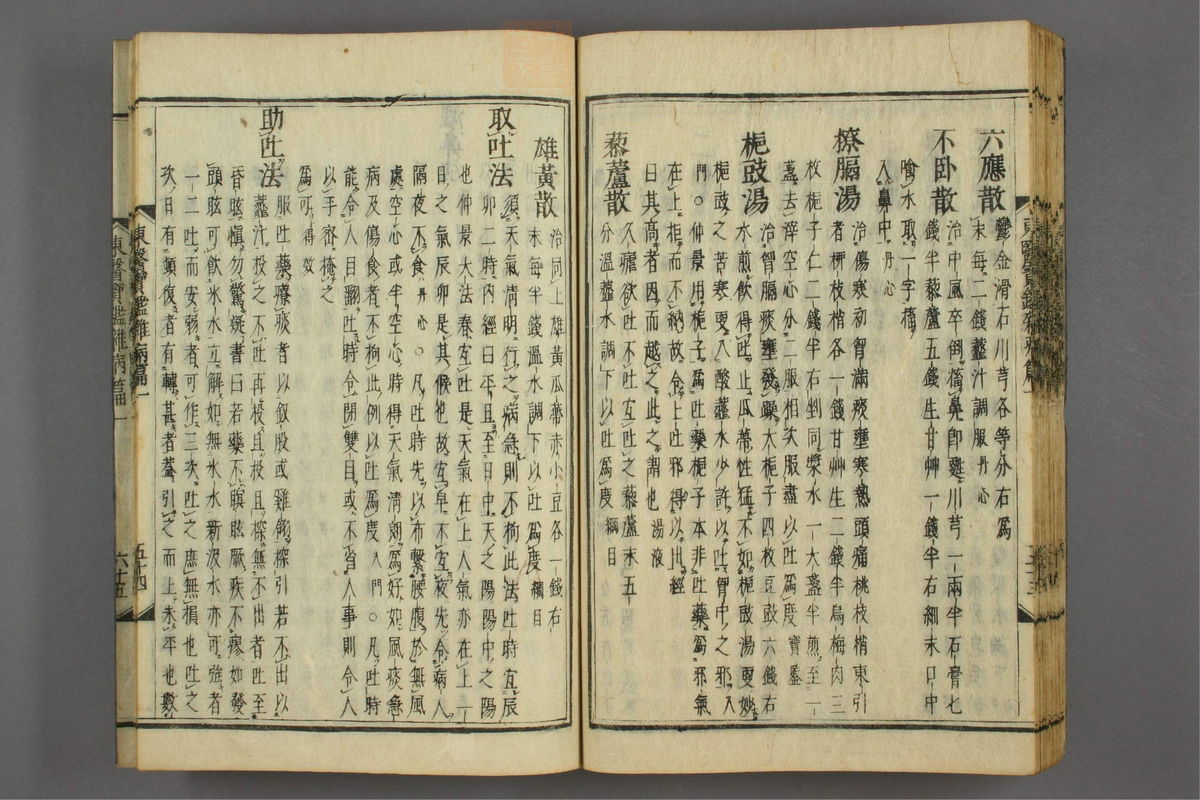 六應散 鬱金滑石川芎各等分右爲
末每二錢虀汁調服丹心
不臥散 治中風卒倒搐鼻卽甦川芎一兩半石膏七
錢半藜蘆五錢生甘艸一錢半右細末口中
噙水取一字搐
入鼻中丹心
撩膈湯 治傷寒初胷滿痰壅寒熱頭痛桃枝梢東引
者柳枝梢各一錢甘艸生二錢半烏梅肉三
枚梔子仁二錢半右剉同漿水一大盞半煎至一
盞去滓空心分二服相次服盡以吐爲度寶鑑
梔豉湯 治胷膈痰壅發躁大梔子四枚豆豉六錢右
水煎飮得吐止瓜蔕性猛不如梔豉湯更妙
梔豉之苦寒更入酸虀水少許以吐胷中之邪入
門○仲景用梔子爲吐藥梔子本非吐藥爲邪氣
在上拒而不納故令上吐邪得以出經
曰其高者因而越之此之謂也湯液
藜蘆散 久瘧欲吐不吐宜吐之藜蘆末五
分溫虀水調下以吐爲度綱目
雄黃散 治同上雄黃瓜蔕赤小豆各一錢右
末每半錢溫水調下以吐爲度綱目
取吐法 須天氣淸明行之病急則不拘此法吐時宜辰
卯二時內經曰平旦至日中天之陽陽中之陽
也仲景大法春宜吐是天氣在上人氣亦在上一
日之氣辰卯是其候也故宜早不宜夜先令病人
隔夜不食丹心○凡吐時先以布繫腰腹於無風
處空心或半空心時得天氣淸朗爲好如風痰急
病及傷食者不拘此例以吐爲度入門○凡吐時
能令人目翻吐時令閉雙目或不省人事則令人
以手密掩之
爲可得效
助吐法 服吐藥療痰者以釵股或雞翎探引若不出以
虀汁投之不吐再投且投且探無不出者吐至
昏眩愼勿驚疑書曰若藥不瞑眩厥疾不瘳如發
頭眩可飮氷水立解如無氷水新汲水亦可強者
一二吐而安弱者可作三次吐之庶無損也吐之
次日有頓復者有轉甚者蓋引之而上未平也數
東醫寶鑑雜病篇一
五十四
六十五